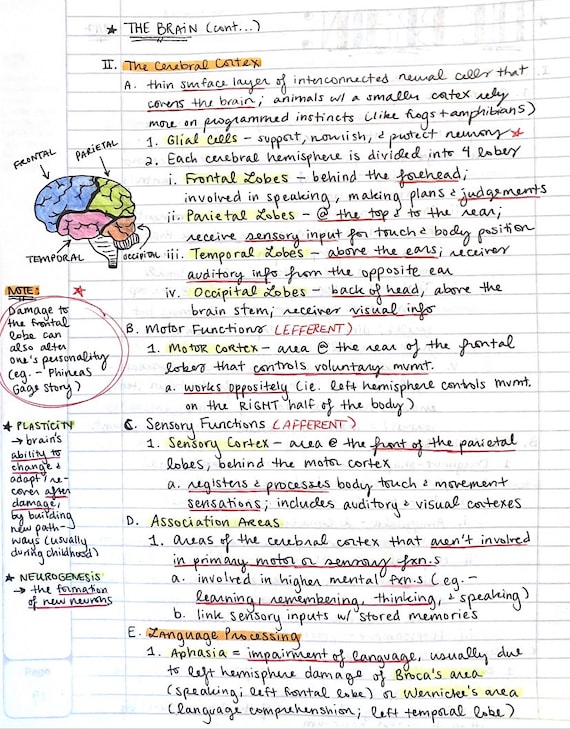 ★ THE BRAIN (cont...)
II. The Cerebral Cortex
A. thin surface layer of interconnected neural cells that
covers the brain; animals w/ a smaller cortex rely
more on programmed instincts (like frogs + amphibians)
1. Glial cells – support, nourish, & protect neurons ★
2. Each cerebral hemisphere is divided into 4 lobes
i. Frontal Lobes – behind the forehead;
involved in speaking, making plans & judgements
ii. Parietal Lobes – @ the top & to the rear;
receive sensory input for touch & body position
iii. Temporal Lobes – above the ears; receives
auditory info from the opposite ear
iv. Occipital Lobes – back of head, above the
brain stem; receives visual info
B. Motor Functions (EFFERENT)
1. Motor Cortex – area @ the rear of the frontal
lobes that controls voluntary mvmt.
a. works oppositely (ie. left hemisphere controls mvmt.
on the RIGHT half of the body)
C. Sensory Functions (AFFERENT)
1. Sensory Cortex – area @ the front of the parietal
lobes, behind the motor cortex
a. registers & processes body touch & movement
sensations; includes auditory & visual cortexes
D. Association Areas
1. areas of the cerebral cortex that aren't involved
in primary motor or sensory fxn.s
a. involved in higher mental fxn.s (eg. –
learning, remembering, thinking, & speaking)
b. link sensory inputs w/ stored memories
E. Language Processing
1. Aphasia = impairment of language, usually due
to left hemisphere damage of Broca's area
(speaking; left frontal lobe) or Wernicke's area
(language comprehenshion; left temporal lobe)
FRONTAL
PARIETAL
TEMPORAL
OCCIPITAL
NOTE: ★
Damage to
the frontal
lobe can
also alter
one's personality
(eg. – Phineas
Gage story)
★ PLASTICITY
→ brain's
ability to
change &
adapt/re-
cover after
damage,
by building
new path-
ways (usually
during childhood)
★ NEUROGENESIS
→ the formation
of new neurons
Page